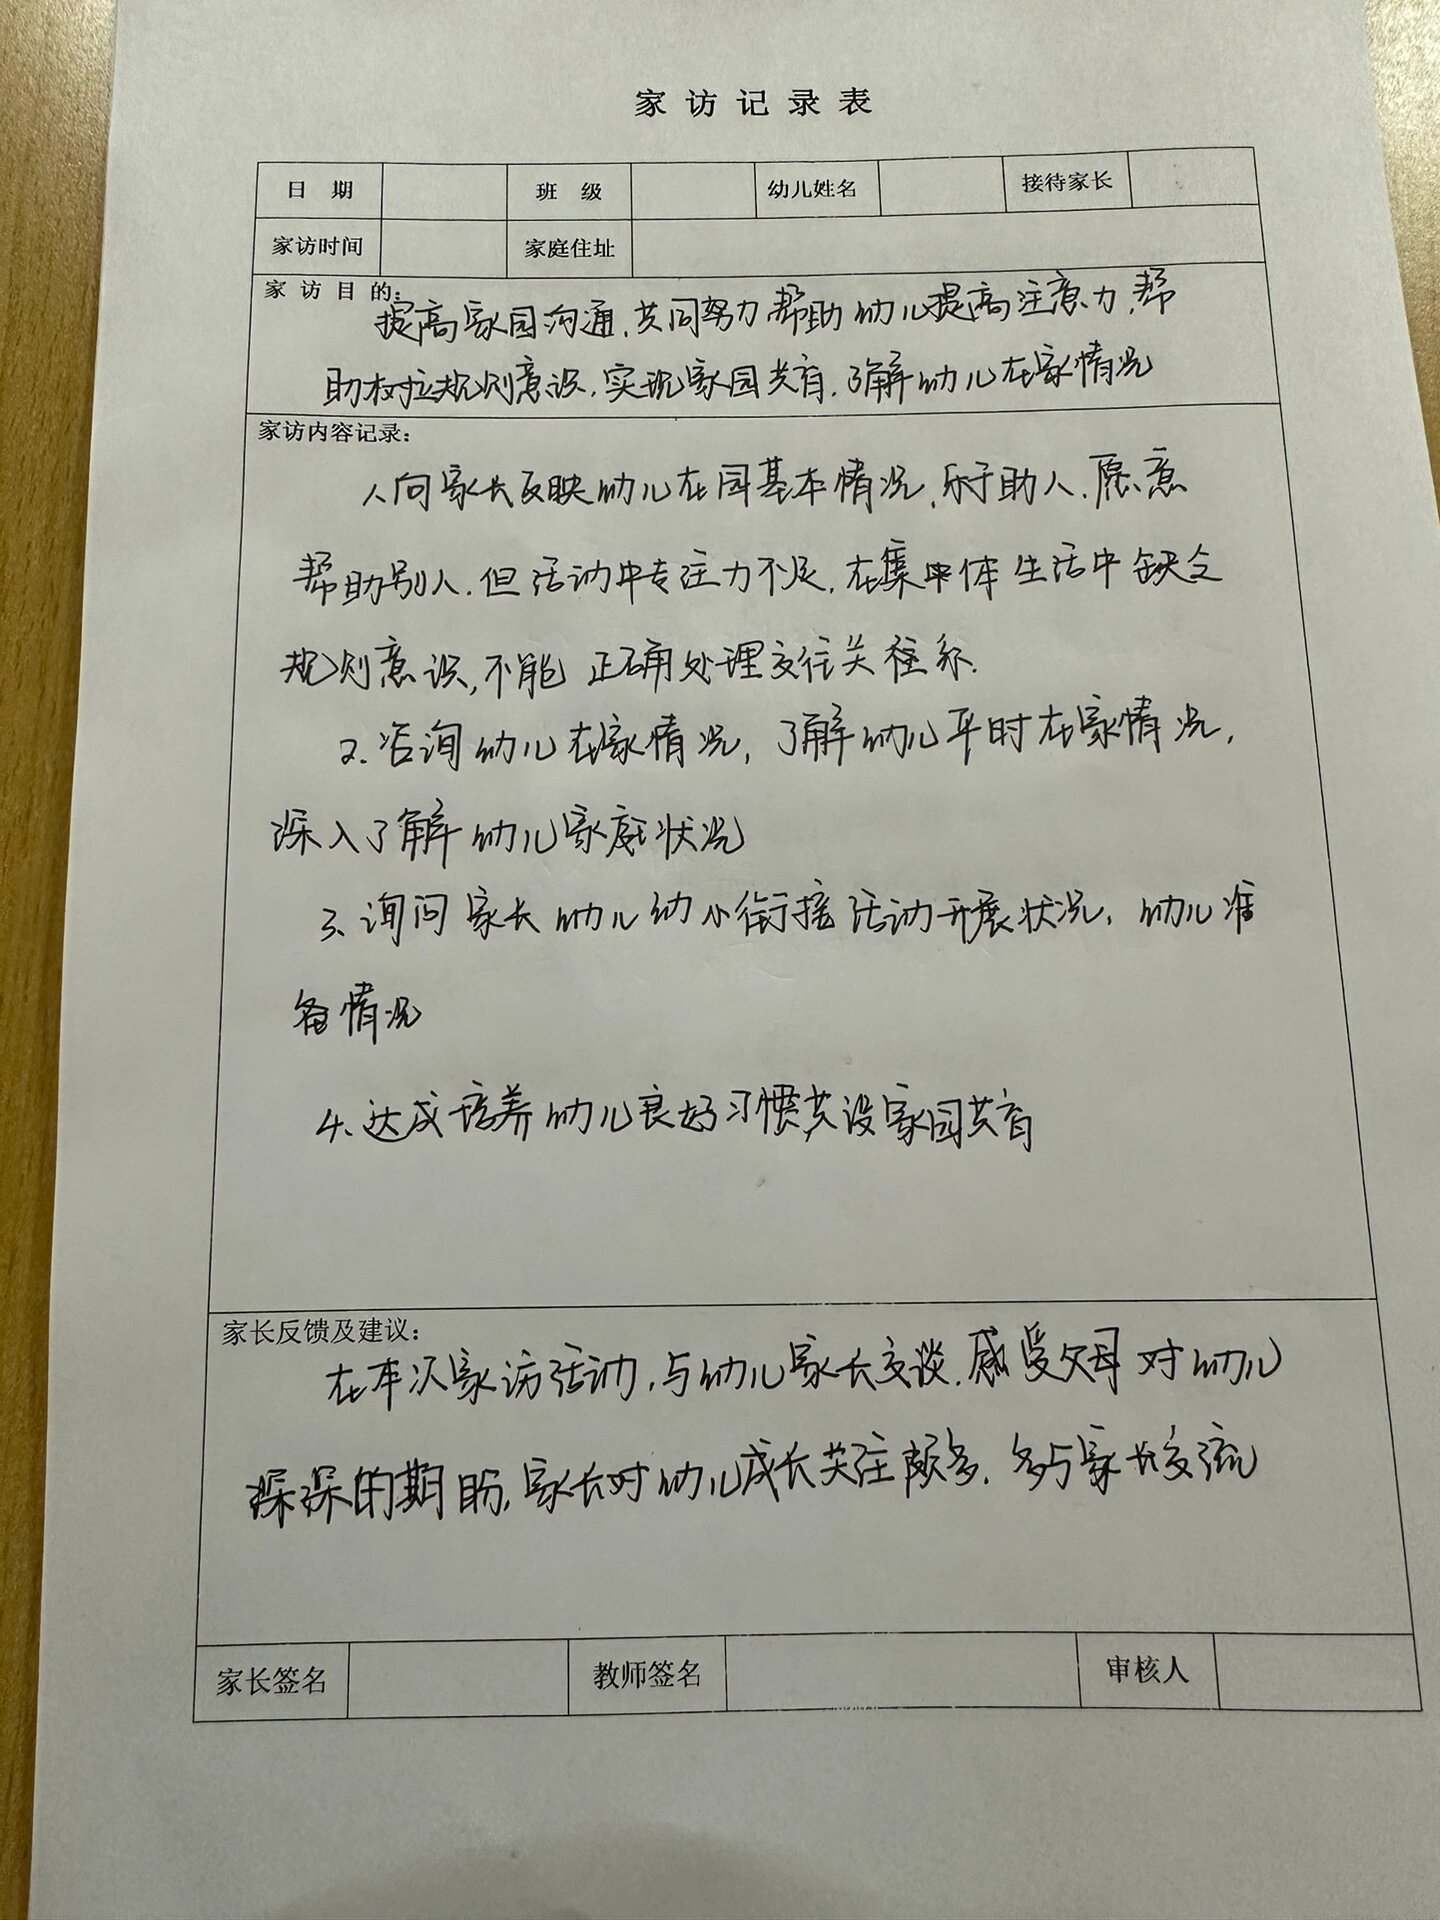 家访记录表
日 期 班 级 幼儿姓名 接待家长
家访时间 家庭住址
家访目的：
提高家园沟通，共同努力帮助幼儿提高注意力，帮
助树立规则意识，实现家园共育，了解幼儿在家情况
家访内容记录：
1、向家长反映幼儿在园基本情况，乐于助人，愿意
帮助别人，但活动中专注力不足，在集中体生活中缺乏
规则意识，不能正确处理交往关系.
2、咨询幼儿在家情况，了解幼儿平时在家情况，
深入了解幼儿家庭状况
3、询问家长幼儿幼小衔接活动开展状况，幼儿准
备情况
4、达成培养幼儿良好习惯，共设家园共育
家长反馈及建议：
在本次家访活动，与幼儿家长交谈，感受父母对幼儿
深深的期盼，家长对幼儿成长关注颇多，多与家长交流
家长签名 教师签名 审核人